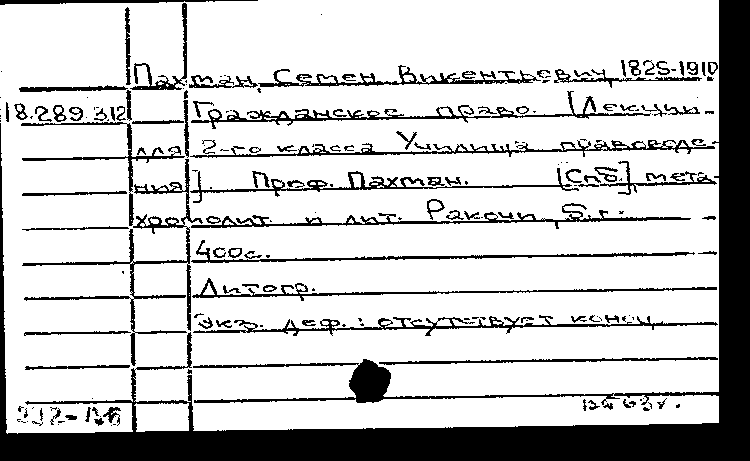 Пахман, Семен Викентьевич, 1825-1910
18.289.312 Гражданское право. [Лекции
для 2-го класса Училища правоведе-
ния]. Проф. Пахман. [Спб.], мета-
хромолит. и лит. Ракочи, Б.г.
400с.
Литогр.
Экз. деф.: отсутствует конец